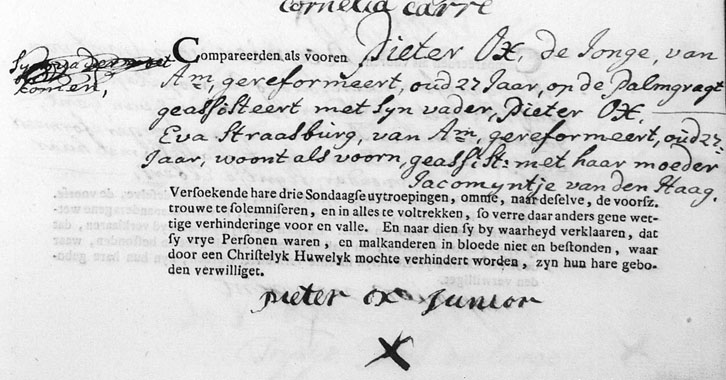 Cornelia Carre
Compareerden als vooren Pieter Ox, de Jonge, van
Am, gereformeert, oud 27 Jaar, op de Palmgragt
geassisteert met Syn vader, Pieter Ox,
Eva Straasburg, van Am, gereformeert, oud 27
Jaar, woont als voorn, geassist: met haar moeder
Jacomyntje van den Haag.
komen,
Versoekende hare drie Sondaagse uytroepingen, omme, naar deselve, de voorsz.
trouwe te solemniseren, en in alles te voltrekken, so verre daar anders gene wet-
tige verhinderinge voor en valle. En naar dien sy by waarheyd verklaaren, dat
sy vrye Personen waren, en malkanderen in bloede niet en bestonden, waar
door een Christelyk Huwelyk mochte verhindert worden, zyn hun hare gebo-
den verwilliget.
pieter ox Junior
X